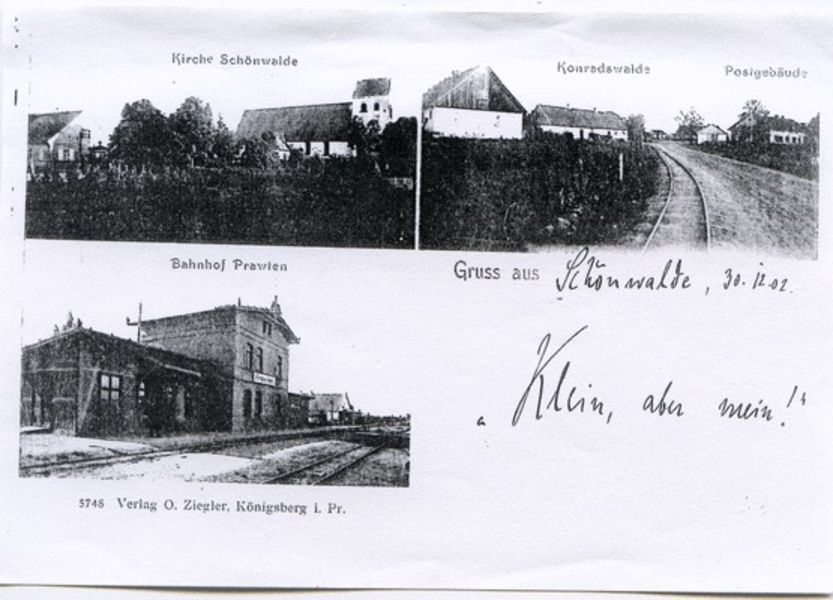 Kirche Schönwalde
Konradswalde
Postgebäude
Bahnhof Prawten
Gruss aus Schönwalde, 30.12.02.
„Klein, aber mein!"
5748 Verlag O. Ziegler, Königsberg i. Pr.